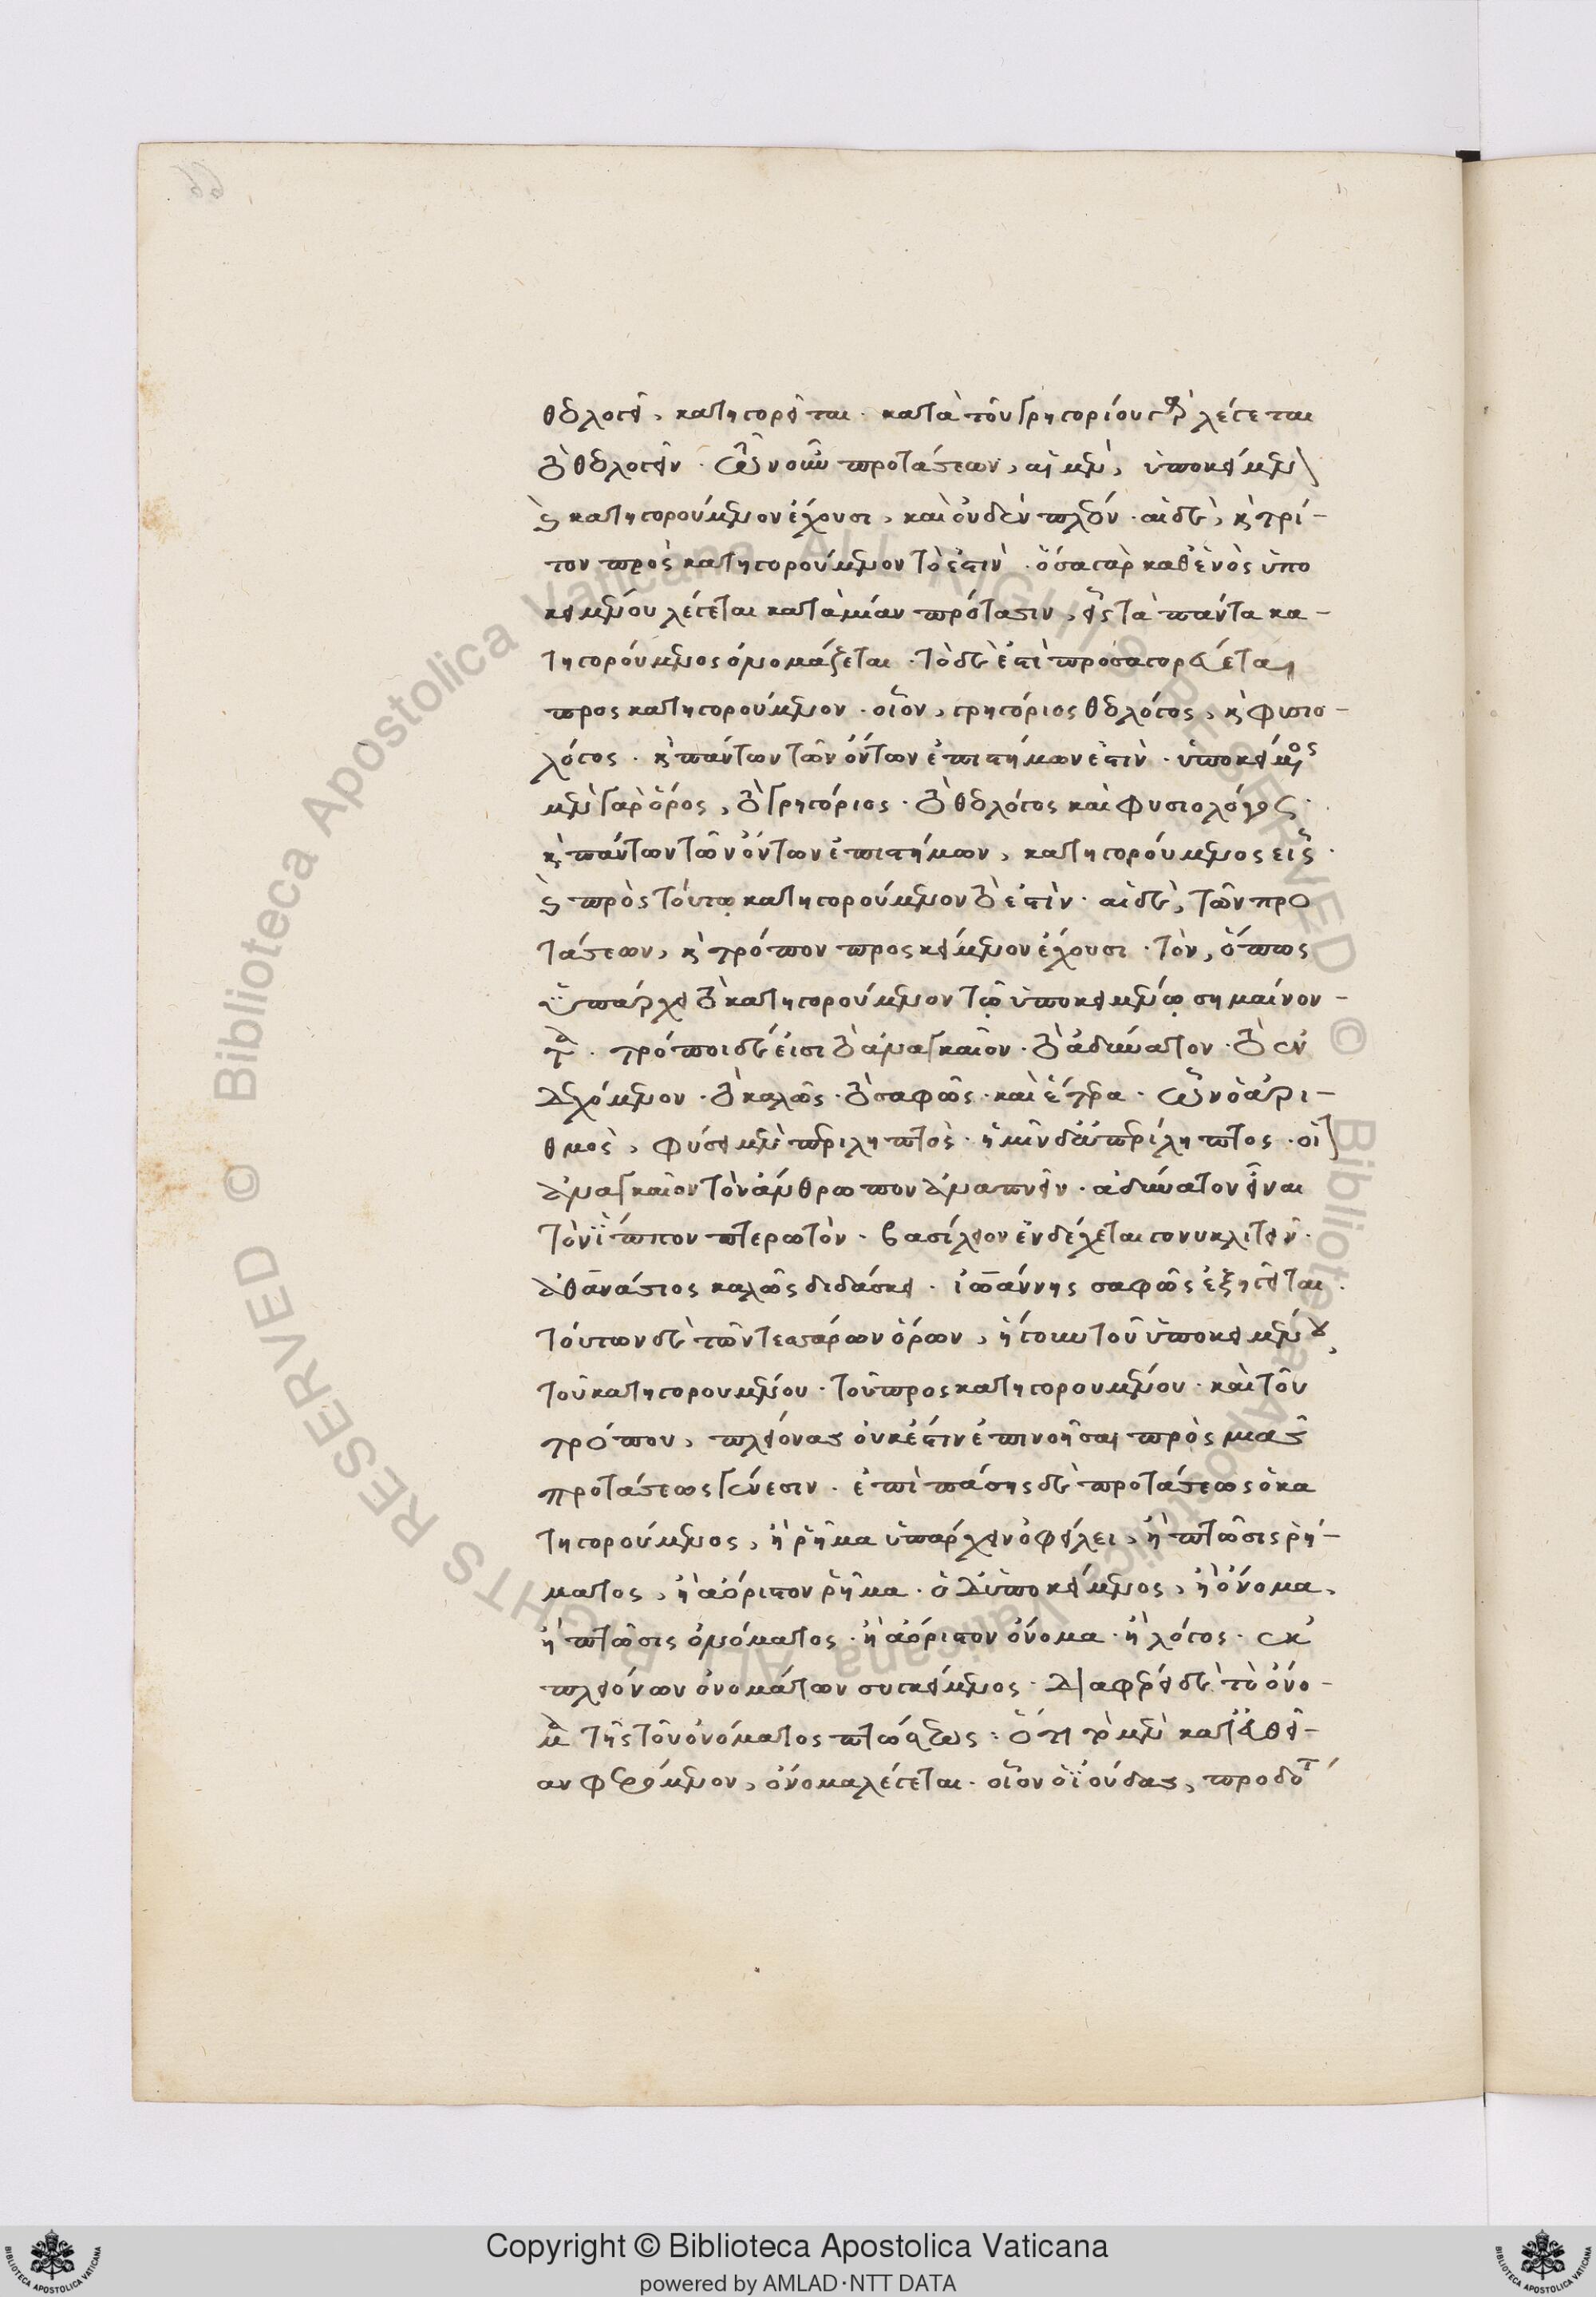 66
θεολογεῖ, κατηγορεῖται. κατὰ τοῦ γρηγορίου γὰρ λέγεται
τὸ θεολογεῖν. τῶν γοῦν προτάσεων, αἱ μὲν, ὑποκείμενον
καὶ κατηγορούμενον ἔχουσι, καὶ οὐδὲν πλέον. αἱ δὲ, καὶ τρί-
τον προσκατηγορούμενον τὸ ἐστὶν. ὅσα γὰρ καθ' ἑνὸς ὑπο
κειμένου λέγεται κατὰ μίαν πρότασιν, εἷς τὰ πάντα κα-
τηγορούμενος ὀνομάζεται. τὸ δὲ ἐστὶ προσαγορεύεται
προσκατηγορούμενον. οἷον, γρηγόριος θεολόγος, καὶ φυσιο-
λόγος. καὶ πάντων τῶν ὄντων ἐπιστήμων ἐστὶν. ὑποκείμενος
μὲν γὰρ ὅρος, τὸ γρηγόριος. τὸ θεολόγος καὶ φυσιολόγος.
καὶ πάντων τῶν ὄντων ἐπιστήμων, κατηγορούμενος εἷς.
καὶ πρὸς τούτω κατηγορούμενον τὸ ἐστὶν. αἱ δὲ, τῶν προ
τάσεων, καὶ τρόπον προσκείμενον ἔχουσι. τὸν, ὅπως
ὑπάρχει τὸ κατηγορούμενον τῷ ὑποκειμένῳ σημαίνον-
τα. τρόποι δὲ εἰσι τὸ ἀναγκαῖον. τὸ ἀδύνατον. τὸ ἐν
δεχόμενον. τὸ καλῶς. τὸ σαφῶς. καὶ ἕτερα. ὧν ὁ ἀρι-
θμὸς, φύσει μὲν περιληπτὸς. ἡμῖν δ' ἀπερίληπτος. οἷον
ἀναγκαῖον τὸν ἄνθρωπον ἀναπνεῖν. ἀδύνατον εἶναι
τὸν ἵππον πτερωτὸν. βασίλειον ἐνδέχεται γονυκλιτεῖν.
ἀθανάσιος καλῶς διδάσκει. ἰωάννης σαφῶς ἐξηγεῖται.
τούτων δὲ τῶν τεσσάρων ὅρων, ἤγουν τοῦ ὑποκειμένου,
τοῦ κατηγορουμένου. τοῦ προσκατηγορουμένου. καὶ τοῦ
τρόπου, πλείονας οὐκ ἔστιν ἐπινοῆσαι πρὸς μιᾶς
προτάσεως γένεσιν. ἐπὶ πάσης δὲ προτάσεως ὁ κα
τηγορούμενος, ἢ ῥῆμα ὑπάρχειν ὀφείλει, ἢ πτῶσις ῥή-
ματος, ἢ ἀόριστον ῥῆμα. ὁ δ' ὑποκείμενος, ἢ ὄνομα,
ἢ πτῶσις ὀνόματος. ἢ ἀόριστον ὄνομα. ἢ λόγος. ἐκ
πλειόνων ὀνομάτων συγκείμενος. διαφέρει δὲ τὸ ὄνο-
μα τῆς τοῦ ὀνόματος πτώσεως. ὅτι τὸ μὲν κατ' εὐθεῖ-
αν φερόμενον, ὄνομα λέγεται. οἷον ὁ ἰούδας, προδότ
Copyright © Biblioteca Apostolica Vaticana
powered by AMLAD·NTT DATA